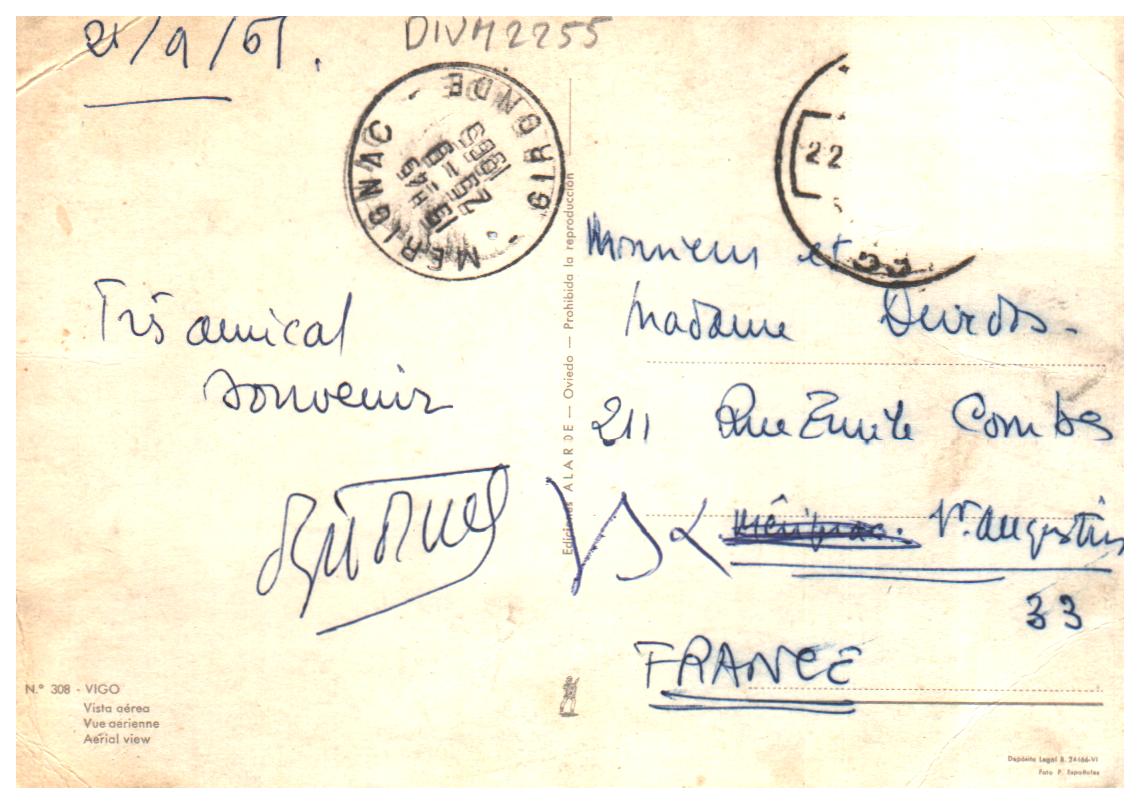 21/9/61.
DIVH2255
MERIGNAC GIRONDE
15 H 45
25 - 9
1969
22
Très amical
souvenir
Monsieur et
Madame
211 Rue Emile Combes
Mérignac. St. Augustin
33
FRANCE
Ediciones ALARDE — Oviedo — Prohibida la reproducción
N.º 308 - VIGO
Vista aérea
Vue aerienne
Aerial view
Depósito Legal B. 24166-VI
Foto P. Españolas